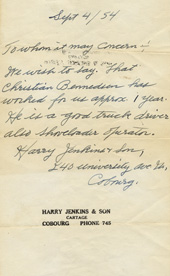 Sept 4/54
To whom at may concern:-
We wish to say. That
Christian Bennedsen has
worked for us approx 1 year.
He is a good truck driver
also showloader operator.
Harry Jenkins & Son,
240 university ave
Cobourg.
HARRY JENKINS & SON
CARTAGE
COBOURG PHONE 745